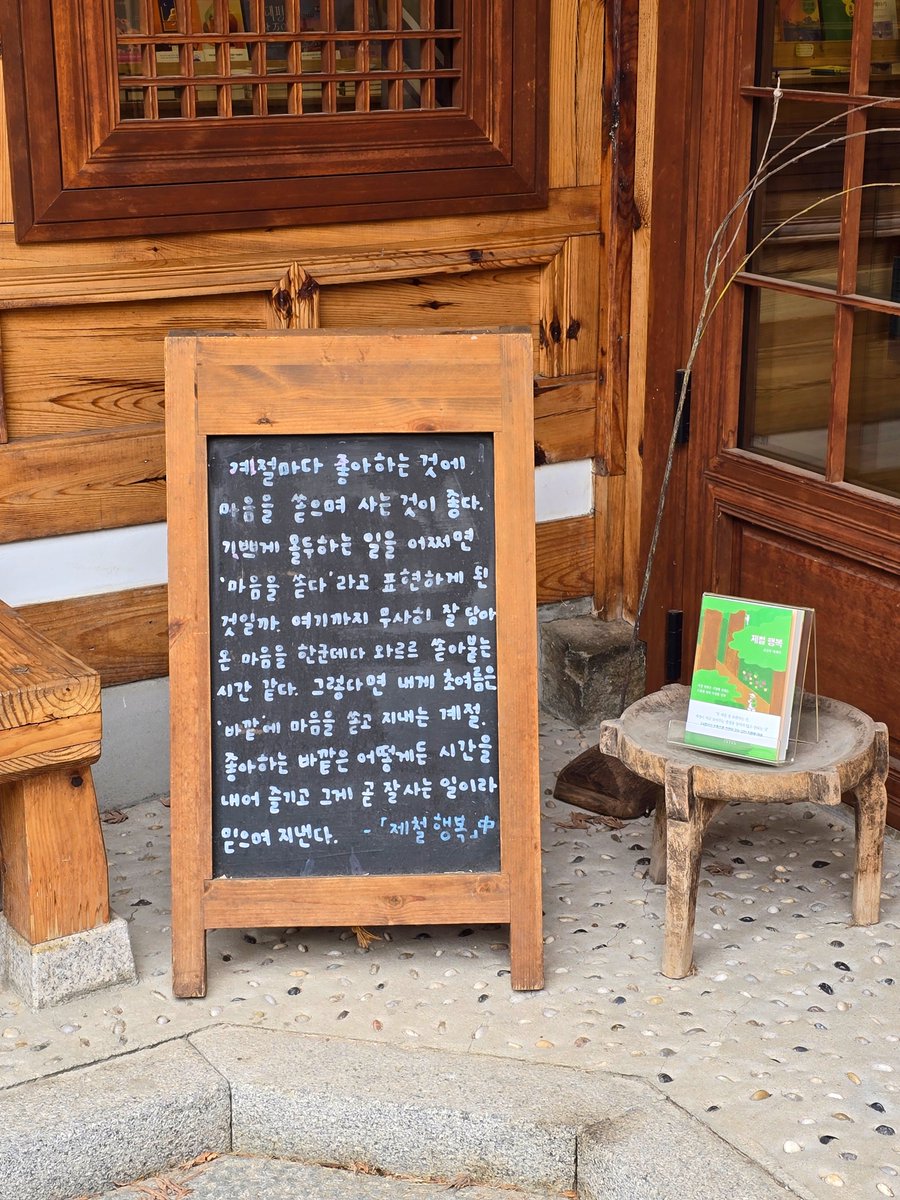 계절마다 좋아하는 것에
마음을 쏟으며 사는 것이 좋다.
기쁘게 몰두하는 일을 어쩌면
'마음을 쏟다'라고 표현하게 된
것일까. 여기까지 무사히 잘 담아
온 마음을 한군데다 와르르 쏟아붓는
시간 같다. 그렇다면 내게 초여름은
'바깥'에 마음을 쏟고 지내는 계절.
좋아하는 바깥은 어떻게든 시간을
내어 즐기고 그게 곧 잘 사는 일이라
믿으며 지낸다. -「제철 행복」中
제철 행복